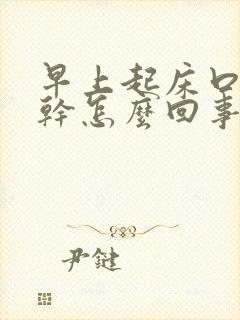 早上起床口
幹怎麼回事
尹鍵